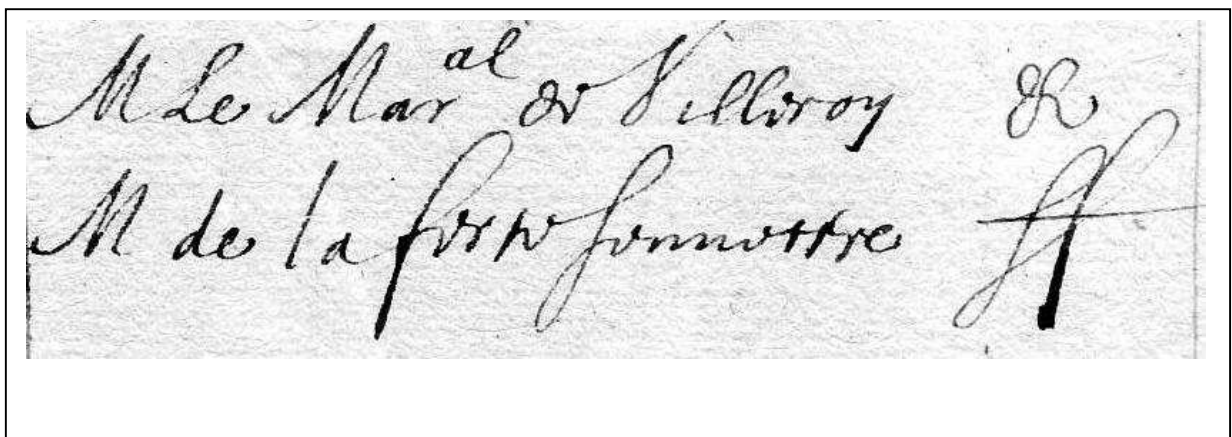 M Le Mar^al de Villeroy &
M de la ferte sennettre ff